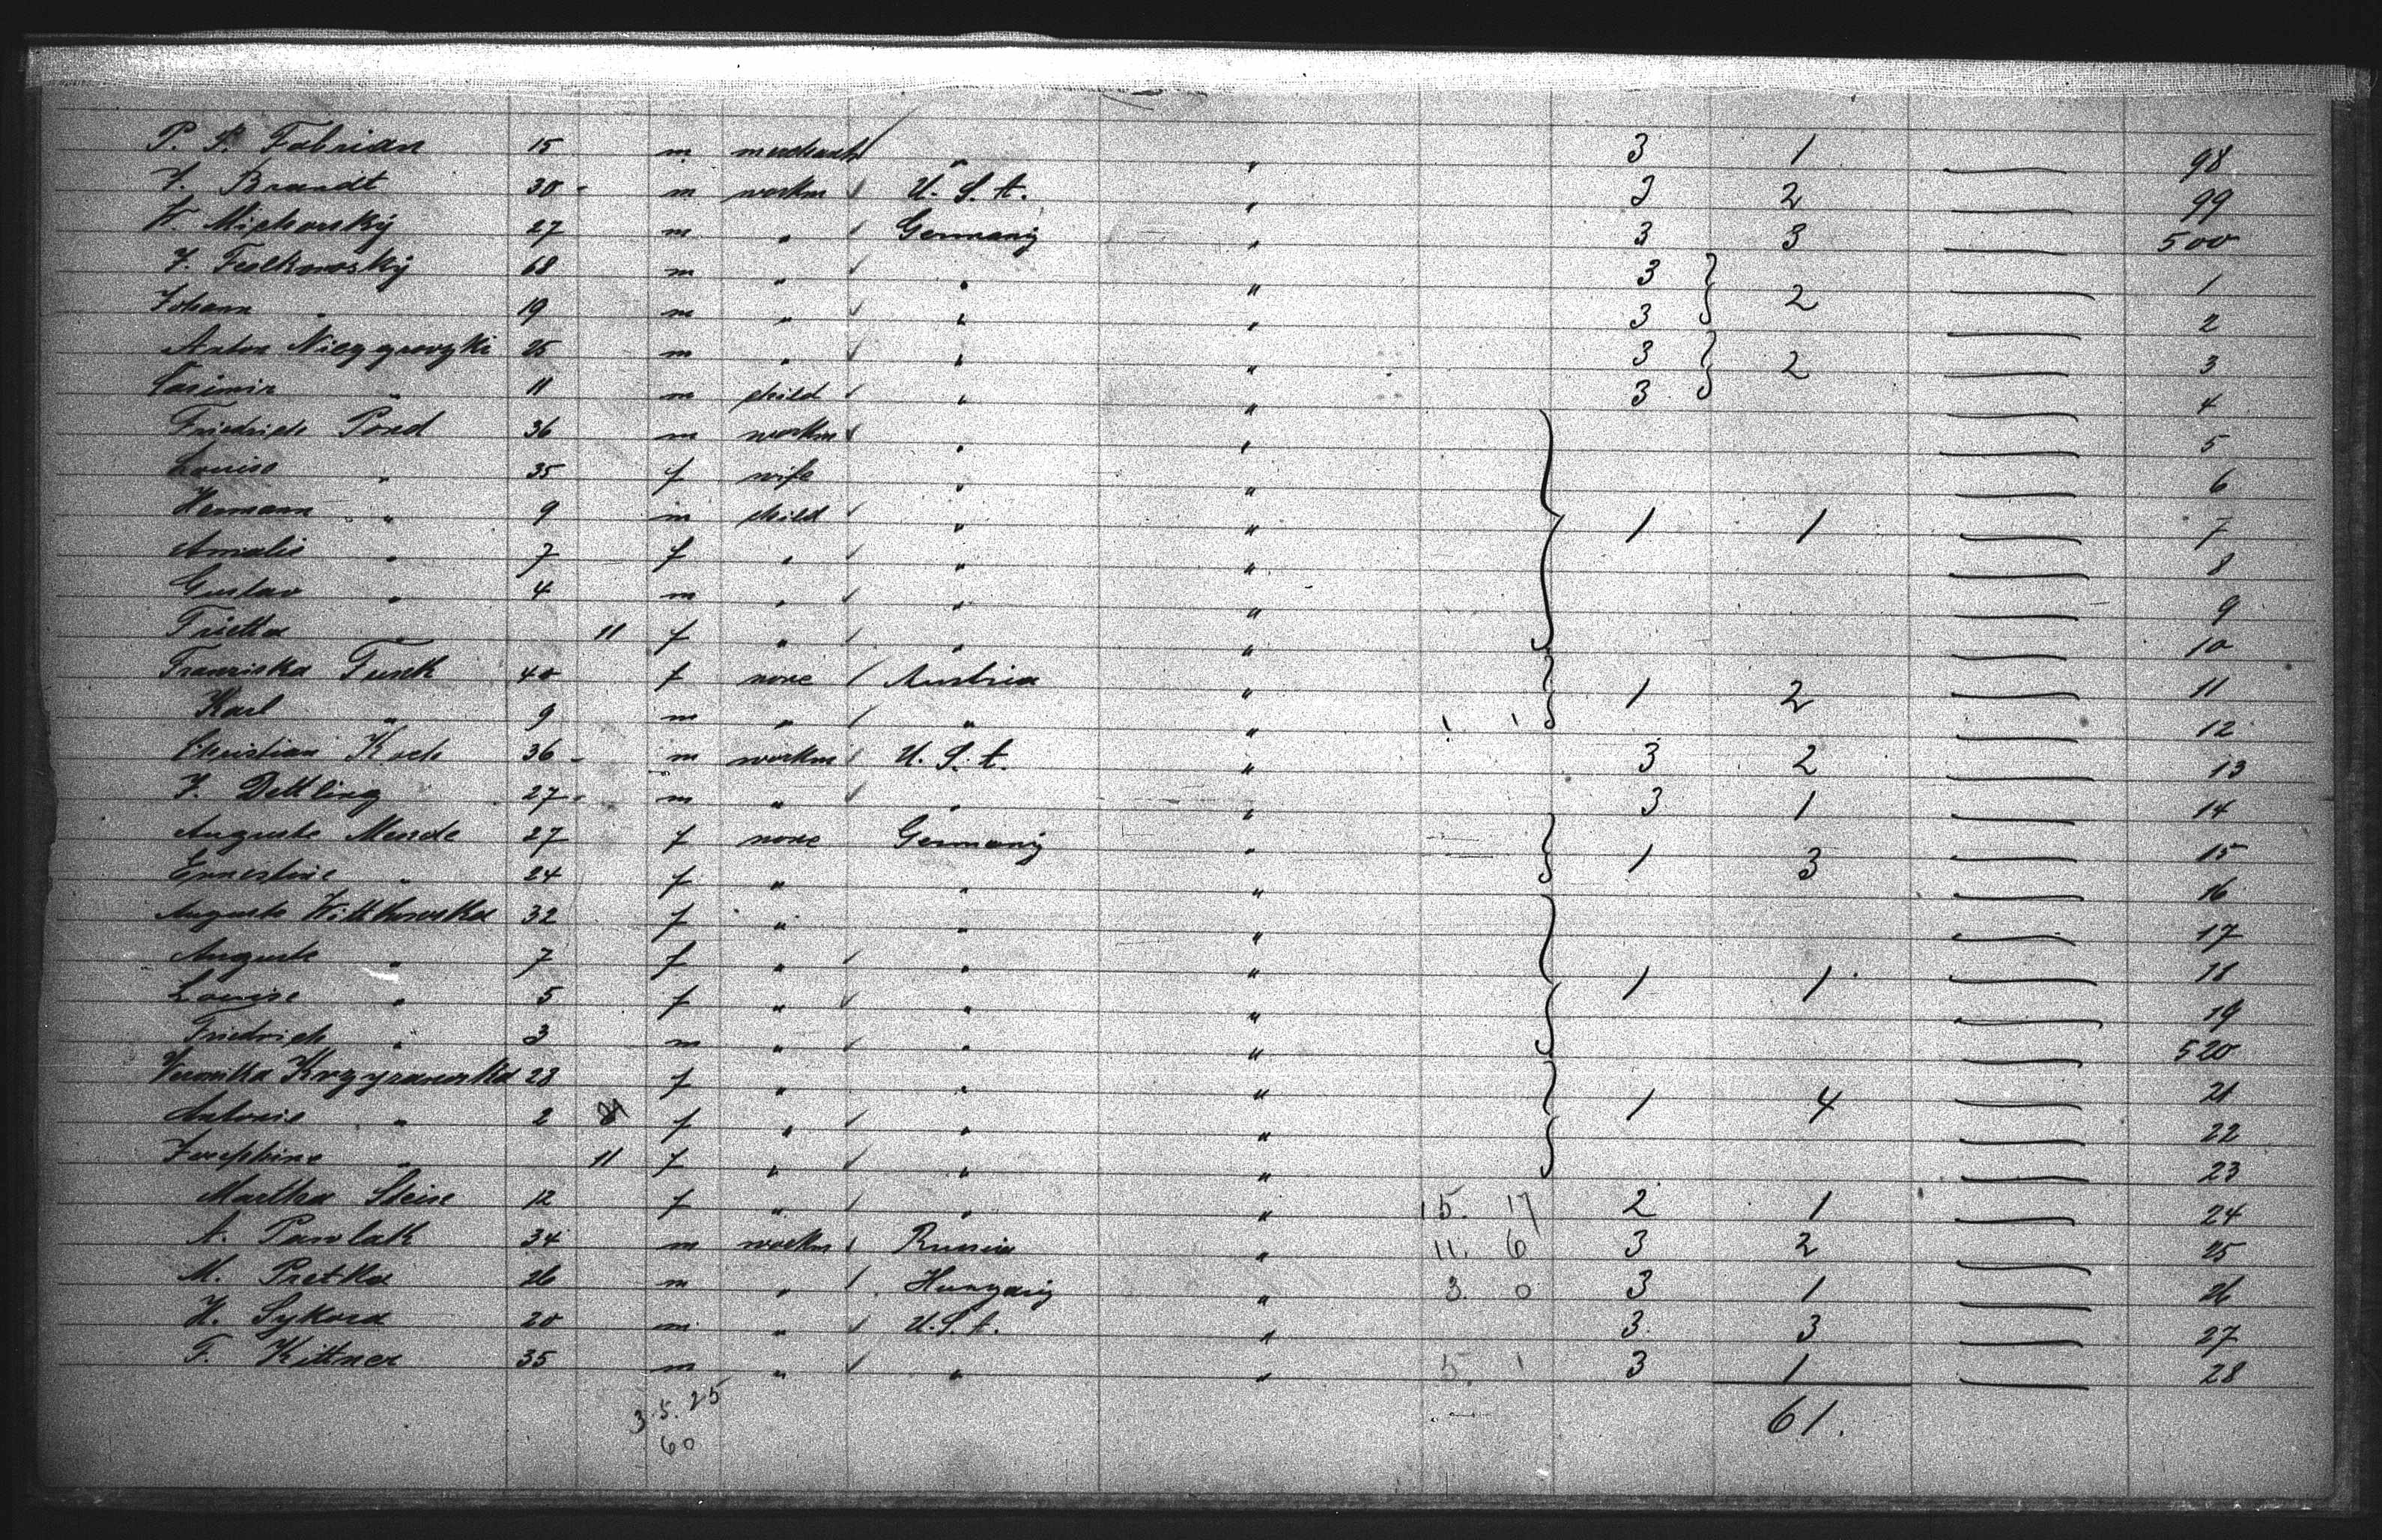 P. S. Fabrian 15 m merchant " " 3 1 98
J. Brandt 30 m workm U. S. A. " 3 2 99
W. 27 m " Germany " 3 3 500
J. 68 m " " " 3 1
Johann " 19 m " " " 3 2 2
Anton 25 m " " " 3 3
Casimir " 11 m child " " 3 2 4
Friedrich Pond 36 m workm " " 5
Louise " 35 f wife " " 6
Hermann " 9 m child " " 1 1 7
Amalie " 7 f " " " 8
Gustav " 4 m " " " 9
Frieda " 11 f " " " 10
Franziska Turek 40 f none Austria " 11
Karl " 9 m " " " 1 2 12
Christian Koch 36 m workm U. S. A. " 3 2 13
J. Dettling 27 m " " " 3 1 14
Auguste Mende 27 f none Germany " 15
Ernestine " 24 f " " " 1 3 16
Auguste Wittkowska 32 f " " " 17
Auguste " 7 f " " " 18
Louise " 5 f " " " 1 1 19
Friedrich " 3 m " " " 520
Veronika 28 f " " " 21
Antonie " 2 f " " " 1 4 22
Josephine " 11 f " " " 23
Martha Steine 12 f " " " 15. 17 2 1 24
A. Pawlak 34 m workm Russia " 11. 6 3 2 25
M. Pretka 26 m " Hungary " 3. 0 3 1 26
H. Sykora 20 m " U.S.A. " 3 3 27
F. Kittner 35 m " " " 5. 1 3 1 28
3.5.25 61.
60